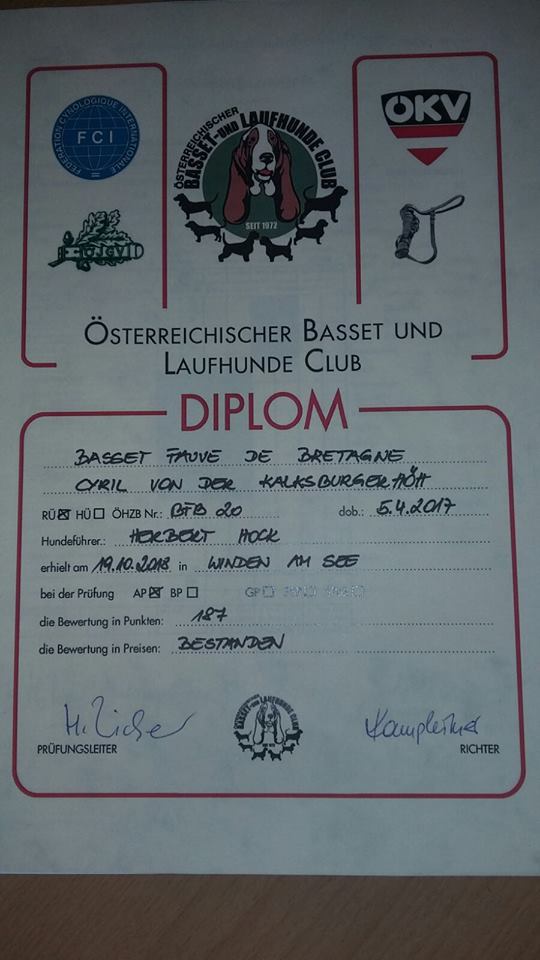 FEDERATION CYNOLOGIQUE INTERNATIONALE
FCI
ÖSTERREICHISCHER
BASSET- UND LAUFHUNDE CLUB
SEIT 1972
ÖKV
ÖJGV
ÖSTERREICHISCHER BASSET UND
LAUFHUNDE CLUB
DIPLOM
BASSET FAUVE DE BRETAGNE
CYRIL VON DER KALKSBURGERHÖH
RÜ ☒ HÜ ☐ ÖHZB Nr.: BFB 20 dob.: 5.4.2017
Hundeführer.: HERBERT HOCK
erhielt am 19.10.2018 in WINDEN AM SEE
bei der Prüfung AP ☒ BP ☐ GP ☐
die Bewertung in Punkten: 187
die Bewertung in Preisen: BESTANDEN
PRÜFUNGSLEITER RICHTER